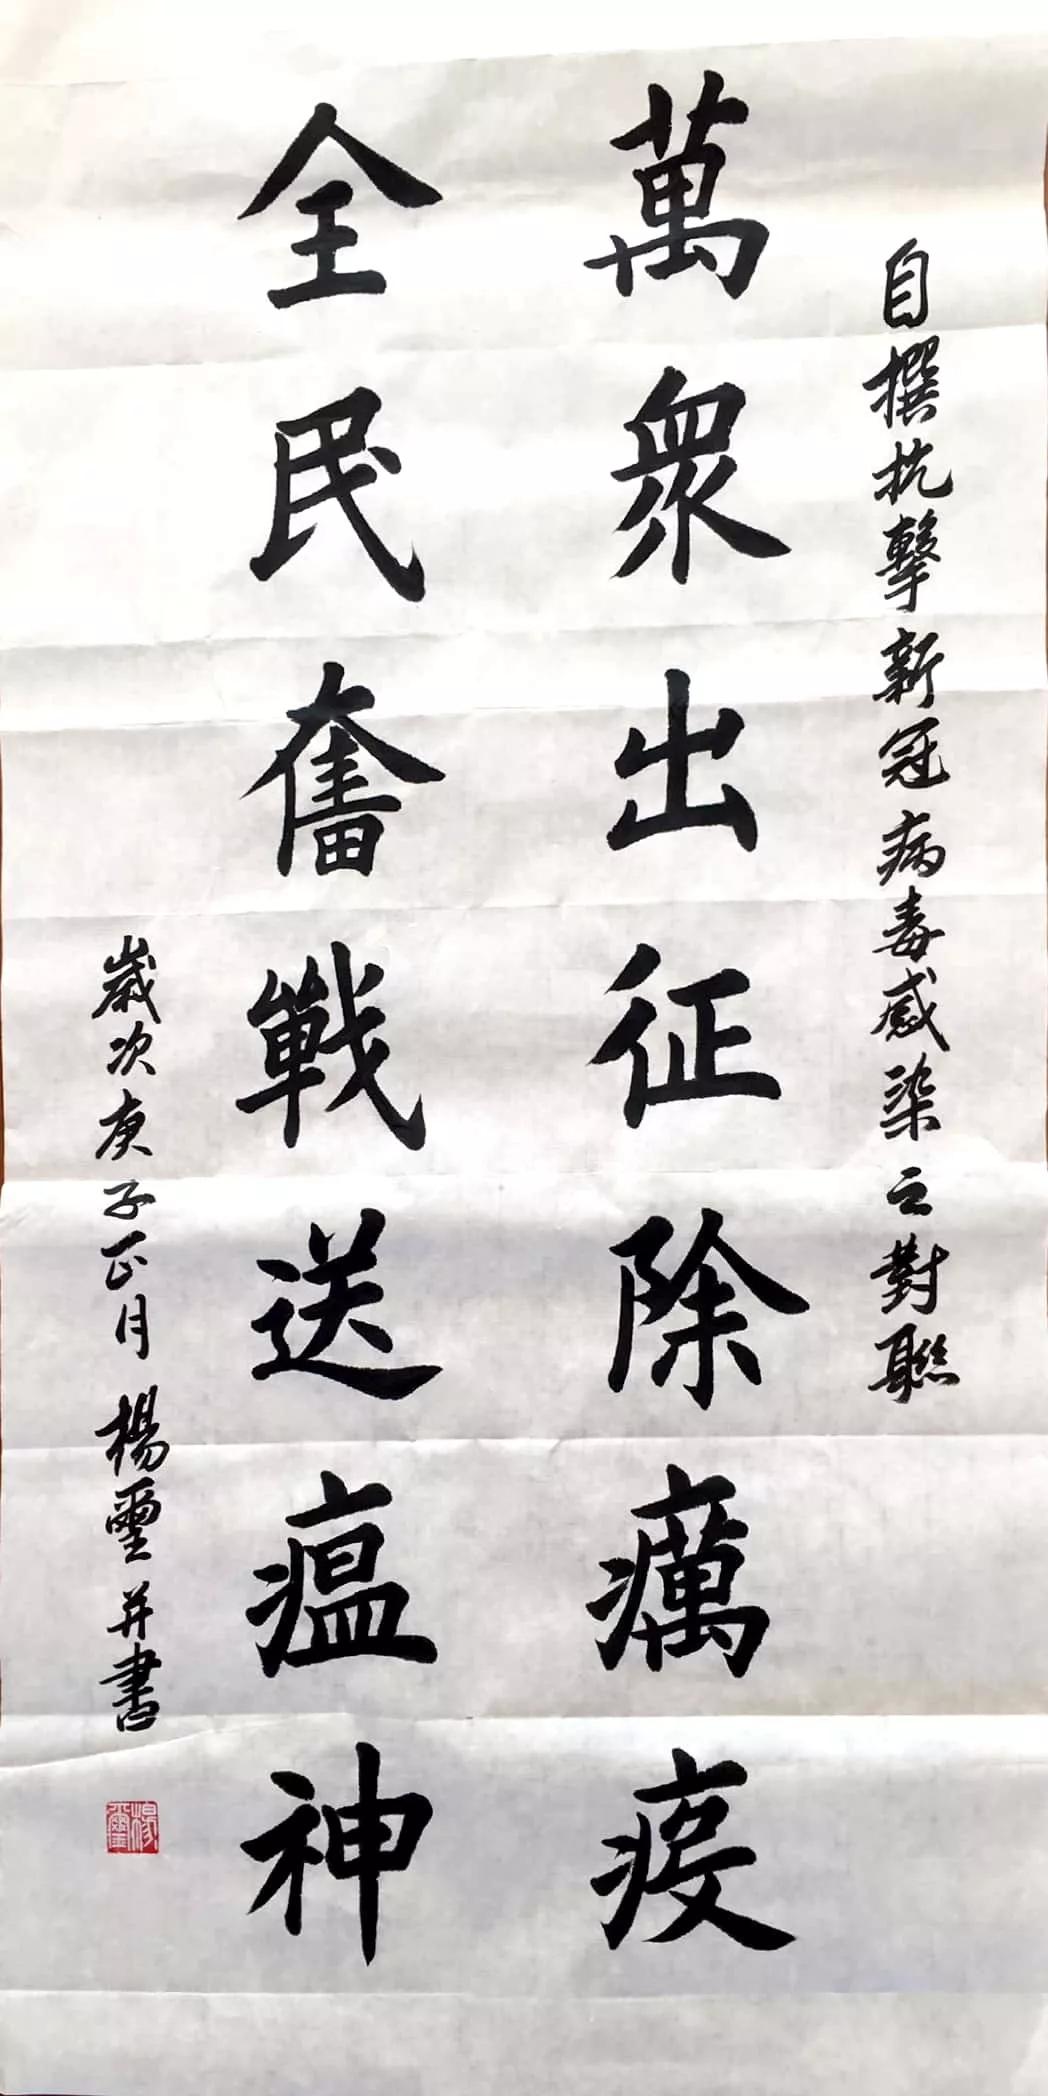 自撰抗擊新冠病毒感染之對聯
萬衆出征除癘疫
全民奮戰送瘟神
歲次庚子正月楊璽并書
楊璽